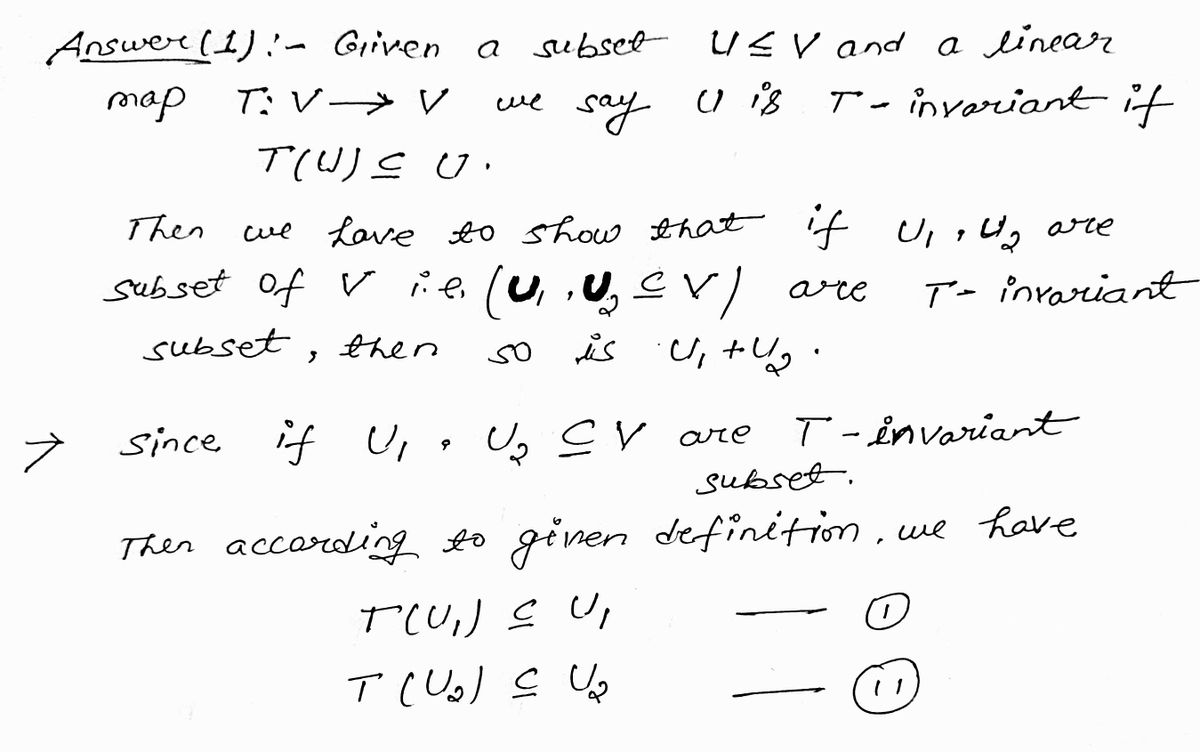 Answer (1) :- Given a subset U ≤ V and a linear
map T: V → V we say U is T - invariant if
T(U) ⊆ U.
Then we have to show that if U₁, U₂ are
subset of V i.e. (U₁, U₂ ⊆ V) are T- invariant
subset, then so is U₁ + U₂.
→ Since if U₁, U₂ ⊆ V are T - invariant
subset.
Then according to given definition, we have
T(U₁) ⊆ U₁ — (I)
T(U₂) ⊆ U₂ — (II)